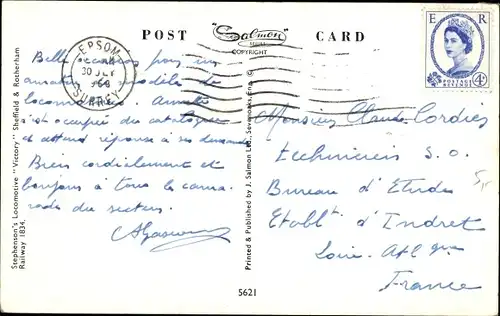 POST
Salmon
SERIES
COPYRIGHT
CARD
E R
POSTAGE REVENUE
4D
EPSOM
30 JLY
1960
SURREY
Belle occasion pour un
amateur modèle de
locomotives. Annette
s'est occupée du catalogue
et attend réponse à ses demandes
Bien cordialement et
bonjour à tous les cama-
rades du secteur.
Stephenson's Locomotive "Victory" - Sheffield & Rotherham
Railway 1834.
Printed & Published by J. Salmon Ltd., Sevenoaks, Eng. ©
Monsieur Claude Cordier
technicien S.O.
Bureau d'Etudes
Etablt d'Indret
Loire-Atlque
France
5621